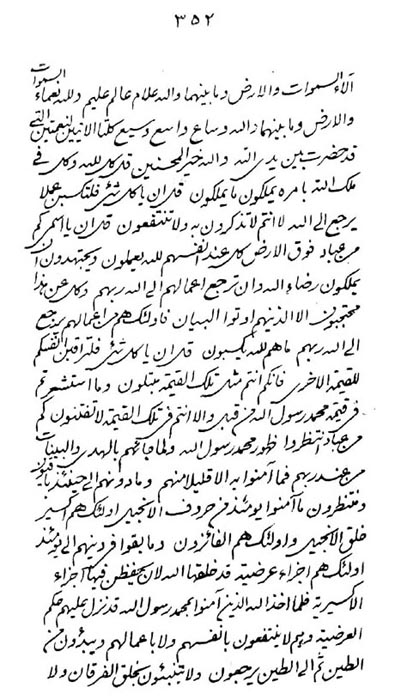 ٣٥٢
آلآء السموات والارض وما بينهما والله علام عالم عليم ولله نعماء السموات
والارض وما بينهما والله وساع واسع وسيع كلتا الآيتين التي
قد حضرت بين يدى الله والله خير المحسنين قل كل لله وكل في
ملك الله بامره يملكون ما يملكون قل ان يا كل شئ فلتكسبن عملا
يرجع الى الله لا انتم لا تذكرون به ولا تنتفعون قل ان يا اسمى كم
من عباد فوق الارض كل عند انفسهم لله يعملون ويجتهدون ان
يملكون رضاء الله وان ترجع اعمالهم الى الله ربهم وكل عن هذا
محتجبون الا الذينهم اوتوا البيان فاولئك هم من اعمالهم يرجع
الى الله ربهم ما هم لله يكسبون قل ان يا كل شئ فلتراقبن انفسكم
للقيمة الاخرى فانكم انتم مثل تلك القيمة تبتلون وما استشعرتم
في قيمة محمد رسول الله من قبل والا انتم في تلك القيمة لا تفتنون كم
من عباد انتظروا ظهور محمد رسول الله ولما جائهم بالهدى والبينات
من عند ربهم فما آمنوا به الا قليلا منهم وما دونهم الى حينئذ باقيون
ومنتظرون ما آمنوا يومئذ من حروف الانجيل اولئك هم اكسير
خلق الانجيل واولئك هم الفائزون وما بقوا من دينهم الى يومئذ
اولئك هم اجزاء عرضية قد خلقها الله لان يحفظن فيها اجزاء
الاكسيرية فلما اخذ الله الذين آمنوا بمحمد رسول الله قد نزل عليهم حكم
العرضية وهم لا ينتفعون بانفسهم ولا باعمالهم ويبدؤن من
الطين ثم الى الطين يرجعون ولا يتنبئون بخلق الفرقان ولا